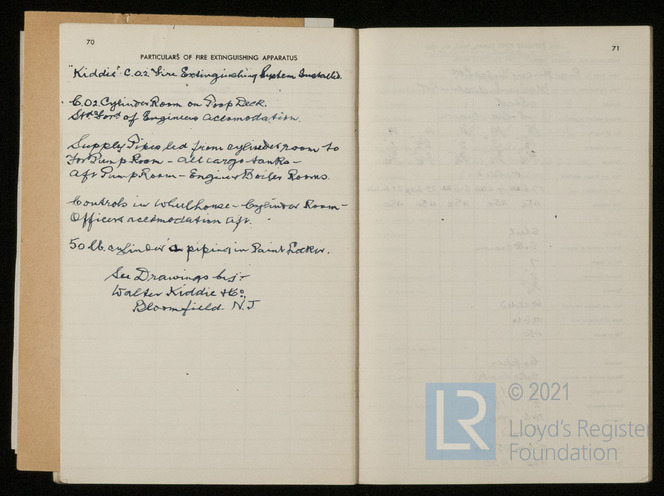 70
PARTICULARS OF FIRE EXTINGUISHING APPARATUS
"Kiddie" C.O2 Fire Extinguishing System Installed.
C.O2 Cylinder Room on Poop Deck.
Stbd Ford of Engineers accomodation.
Supply Pipes led from cylinder room to
For'd Pump Room - all cargo tanks -
aft Pump Room - Engine & Boiler Rooms.
Controls in Wheelhouse - Cylinder Room -
Officers accomodation aft.
50 lb. cylinder & piping in Paint Locker.
See Drawings by:-
Walter Kiddie & Co.,
Bloomfield. N.J
71
LR
© 2021
Lloyd's Register
Foundation